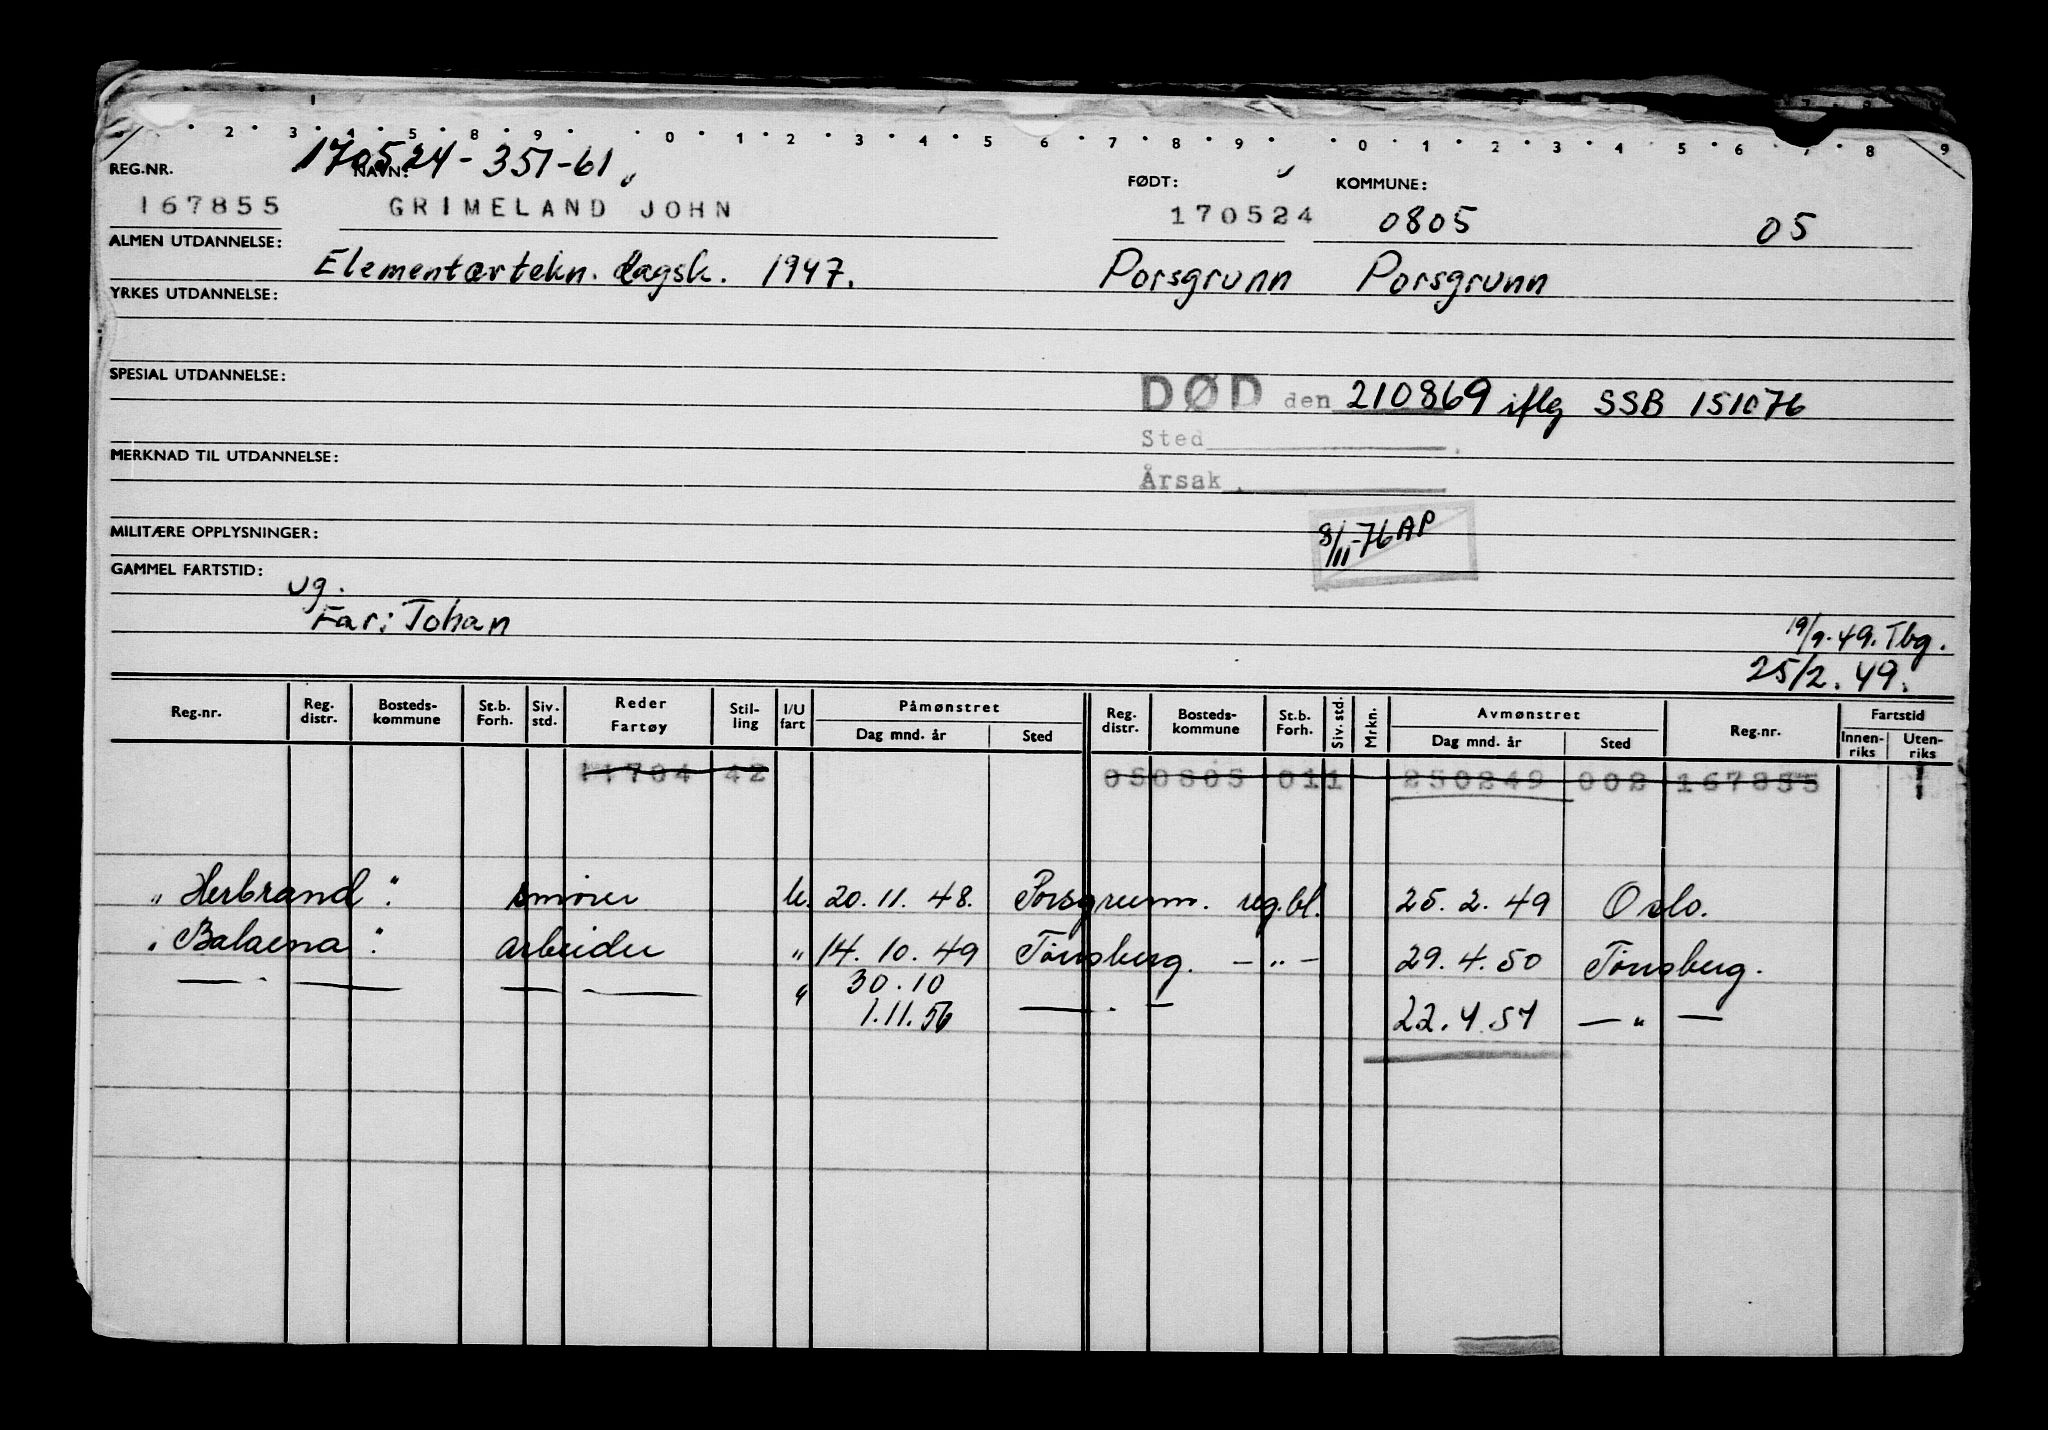 2 3 4 5 8 9 0 1 2 3 4 5 6 7 8 9 0 1 2 3 4 5 6 7 8 9
170524-351-61
REG.NR. NAVN: FØDT: KOMMUNE:
167855 GRIMELAND JOHN 170524 0805 05
ALMEN UTDANNELSE: Elementærtekn. dagsk. 1947. Porsgrunn Porsgrunn
YRKES UTDANNELSE:
SPESIAL UTDANNELSE:
DØD den 210869 iflg SSB 151076
Sted
MERKNAD TIL UTDANNELSE:
Årsak
MILITÆRE OPPLYSNINGER:
8/11-76 AP
GAMMEL FARTSTID:
ug.
Far: Johan
19/9.49. Tbg.
25/2.49.
Reg.nr. Reg. distr. Bosteds-kommune St.b. Forh. Siv. std. Reder Fartøy Stil-ling I/U fart Påmønstret Dag mnd. år Sted Reg. distr. Bosteds-kommune St.b. Forh. Siv. std. Mrkn. Avmønstret Dag mnd. år Sted Reg.nr. Fartstid Innen-riks Uten-riks
11704 42 050805 011 250249 002 167855 1
" Herbrand " smører u. 20.11.48. Porsgrunn. reg.bl. 25.2.49 Oslo.
" Balaena " arbeider " 14.10.49 Tønsberg. — " — 29.4.50 Tønsberg.
— . — — . — " 30.10
1.11.56 — . — 22.4.57 — " —